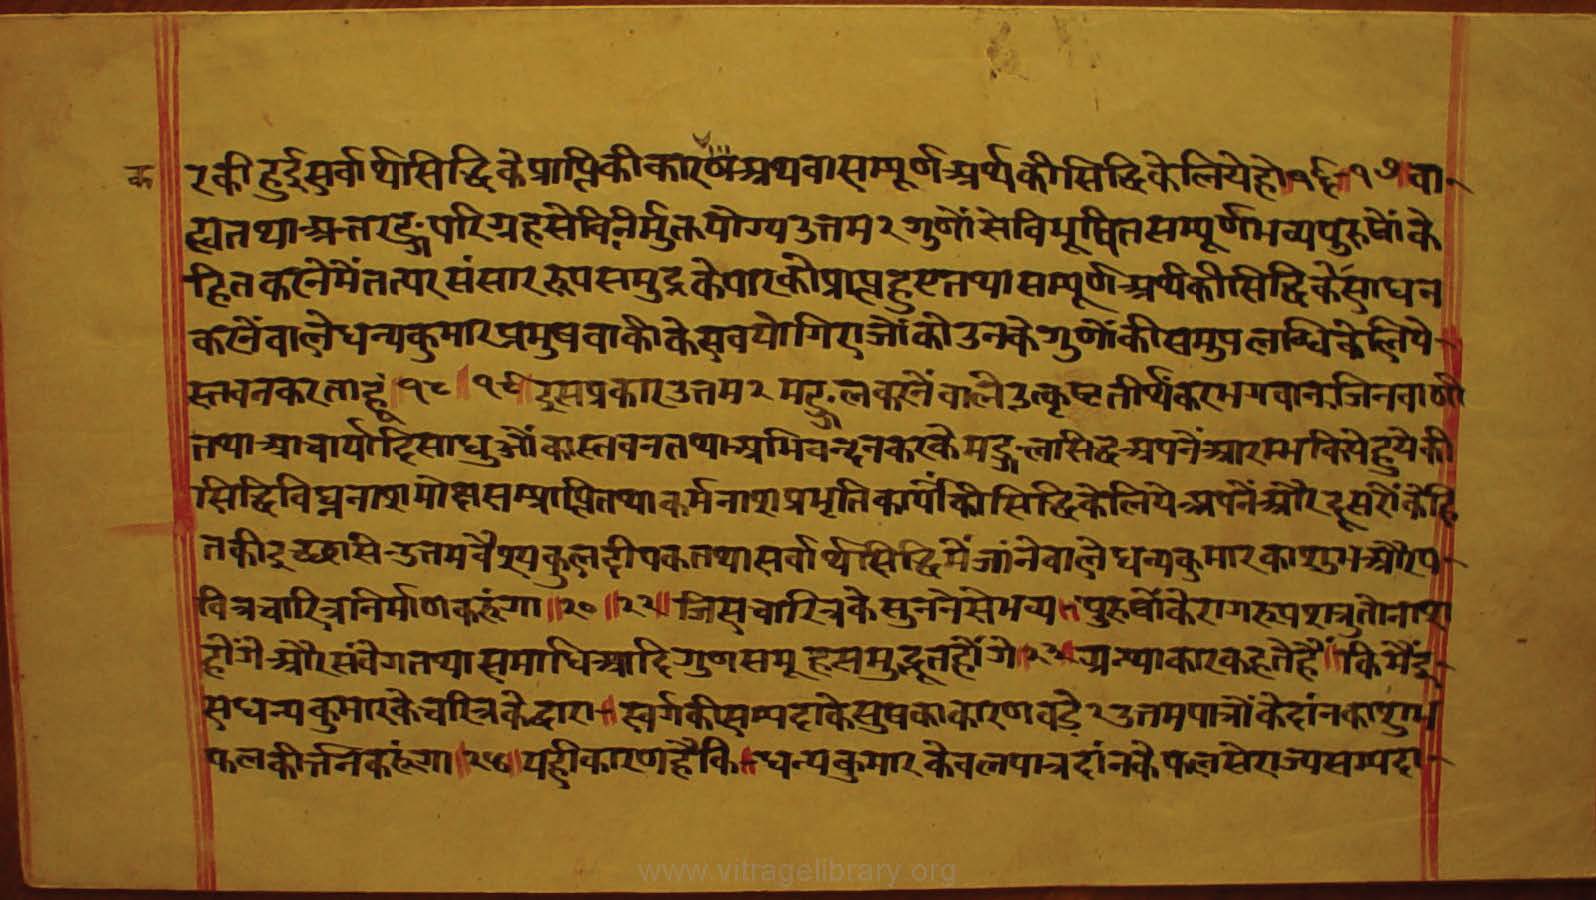 क रकी हुई सुर्वार्थसिद्धि के प्राप्ति की कारण अथवा सम्पूर्ण अर्थ की सिद्धि के लिये हो १६ १७ वा-
ह्य तथा अन्तरङ्ग परिग्रह से विनिर्मुक्त योग्य उत्तम २ गुणों से विभूषित सम्पूर्ण भव्य पुरुषों के
हित करने मैं तत्पर संसार रूप समुद्र के पार को प्राप्त हुए तथा सम्पूर्ण अर्थ की सिद्धि के साधन
करनें वाले धन्यकुमार प्रमुष वाकी के सव योगिराजों को उनके गुणों की समुपलब्धि के लिये-
स्तवन करता हूं १८ १९ इस प्रकार उत्तम २ मङ्गल करनें वाले उत्कृष्ट तीर्थंकर भगवान जिनवाणी
तथा आचार्यादि साधुओं का स्तवन तथा अभिवन्दन करकै मङ्गल सिद्ध अपनें आरम्भ किये हुये की
सिद्धि विघ्न नाश मोक्ष सम्प्राप्ति तथा कर्म नाश प्रभृति कार्यों की सिद्धि के लिये अपनें और दूसरों के हि
त की इच्छा सि उत्तम वैश्य कुल दीपक तथा सर्वार्थसिद्धि मैं जांने वाले धन्यकुमार का शुभ और प-
वित्र चारित्र निर्माण करूंगा २० २२ जिस चारित्र के सुनने से भव्य पुरुषों के राग रूप शत्रु तो नाश
होंगे और संवेग तथा समाधि आदि गुण समूह समुद्भूत होंगे ग्रन्थाकार कहते है कि मैं इ-
स धन्यकुमार के चरित्र के द्वारा स्वर्ग की सम्पदा के सुष का कारण वडे २ उत्तम पात्रों के दांन का शुभ
फल कीर्त्तन करूंगा यही कारण है कि धन्यकुमार केवल पात्र दांन कै फल से राज्य सम्पदा-
www.vitragelibrary.org